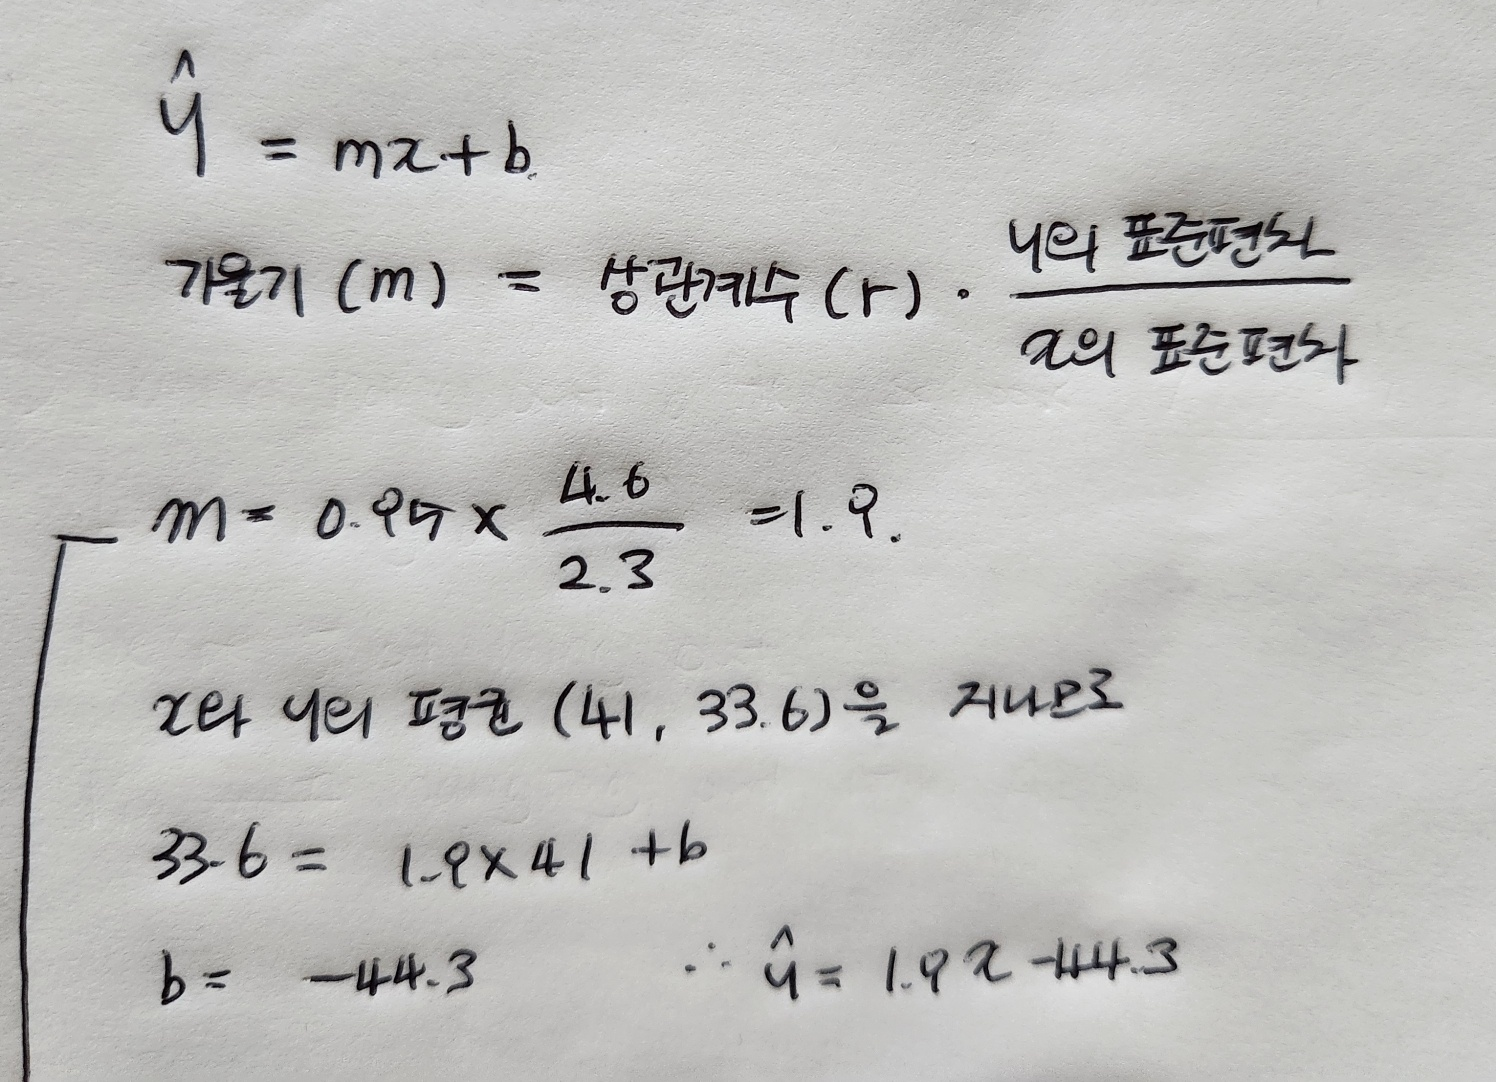 ŷ = mx + b.
기울기 (m) = 상관계수 (r) · y의 표준편차 / x의 표준편차
m = 0.95 × 4.6 / 2.3 = 1.9.
x와 y의 평균 (41, 33.6)을 지나므로
33.6 = 1.9 × 41 + b
b = -44.3 ∴ ŷ = 1.9x - 44.3